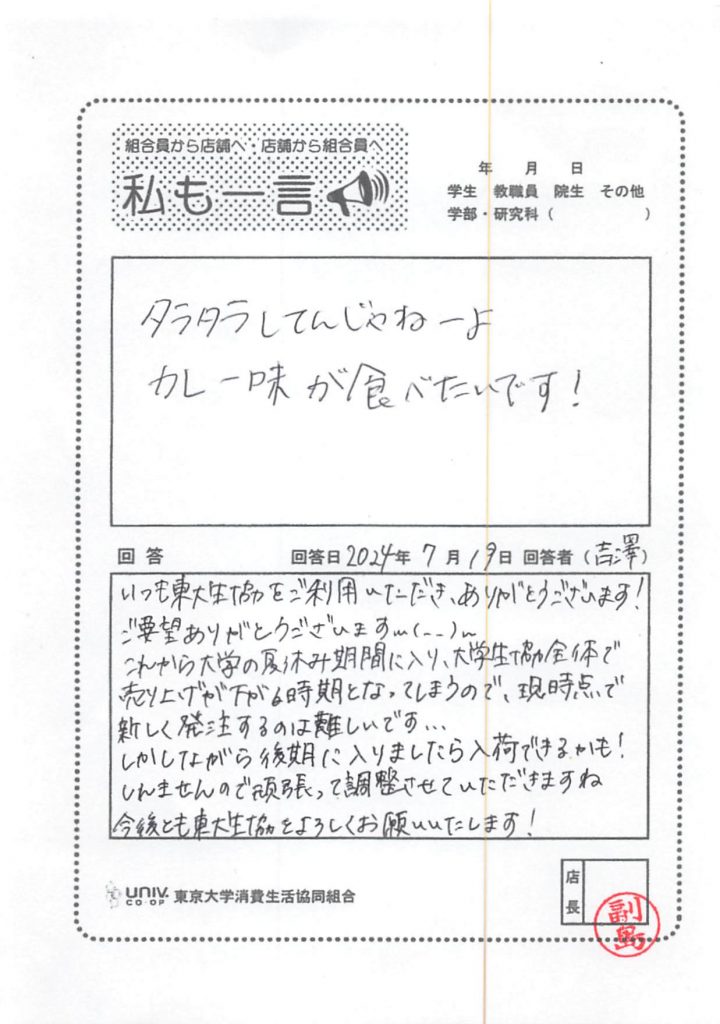 組合員から店舗へ・店舗から組合員へ
私も一言
年 月 日
学生 教職員 院生 その他
学部・研究科( )
タラタラしてんじゃねーよ
カレー味が食べたいです!
回答 回答日2024年7月19日 回答者(吉澤)
いつも東大生協をご利用いただき、ありがとうございます!
ご要望ありがとうございますm(_ _)m
これから大学の夏休み期間に入り、大学生協全体で
売り上げが下がる時期となってしまうので、現時点で
新しく発注するのは難しいです...
しかしながら後期に入りましたら入荷できるかも!
しれませんので頑張って調整させていただきますね
今後とも東大生協をよろしくお願いいたします!
UNIV. CO-OP 東京大学消費生活協同組合
店長
副島